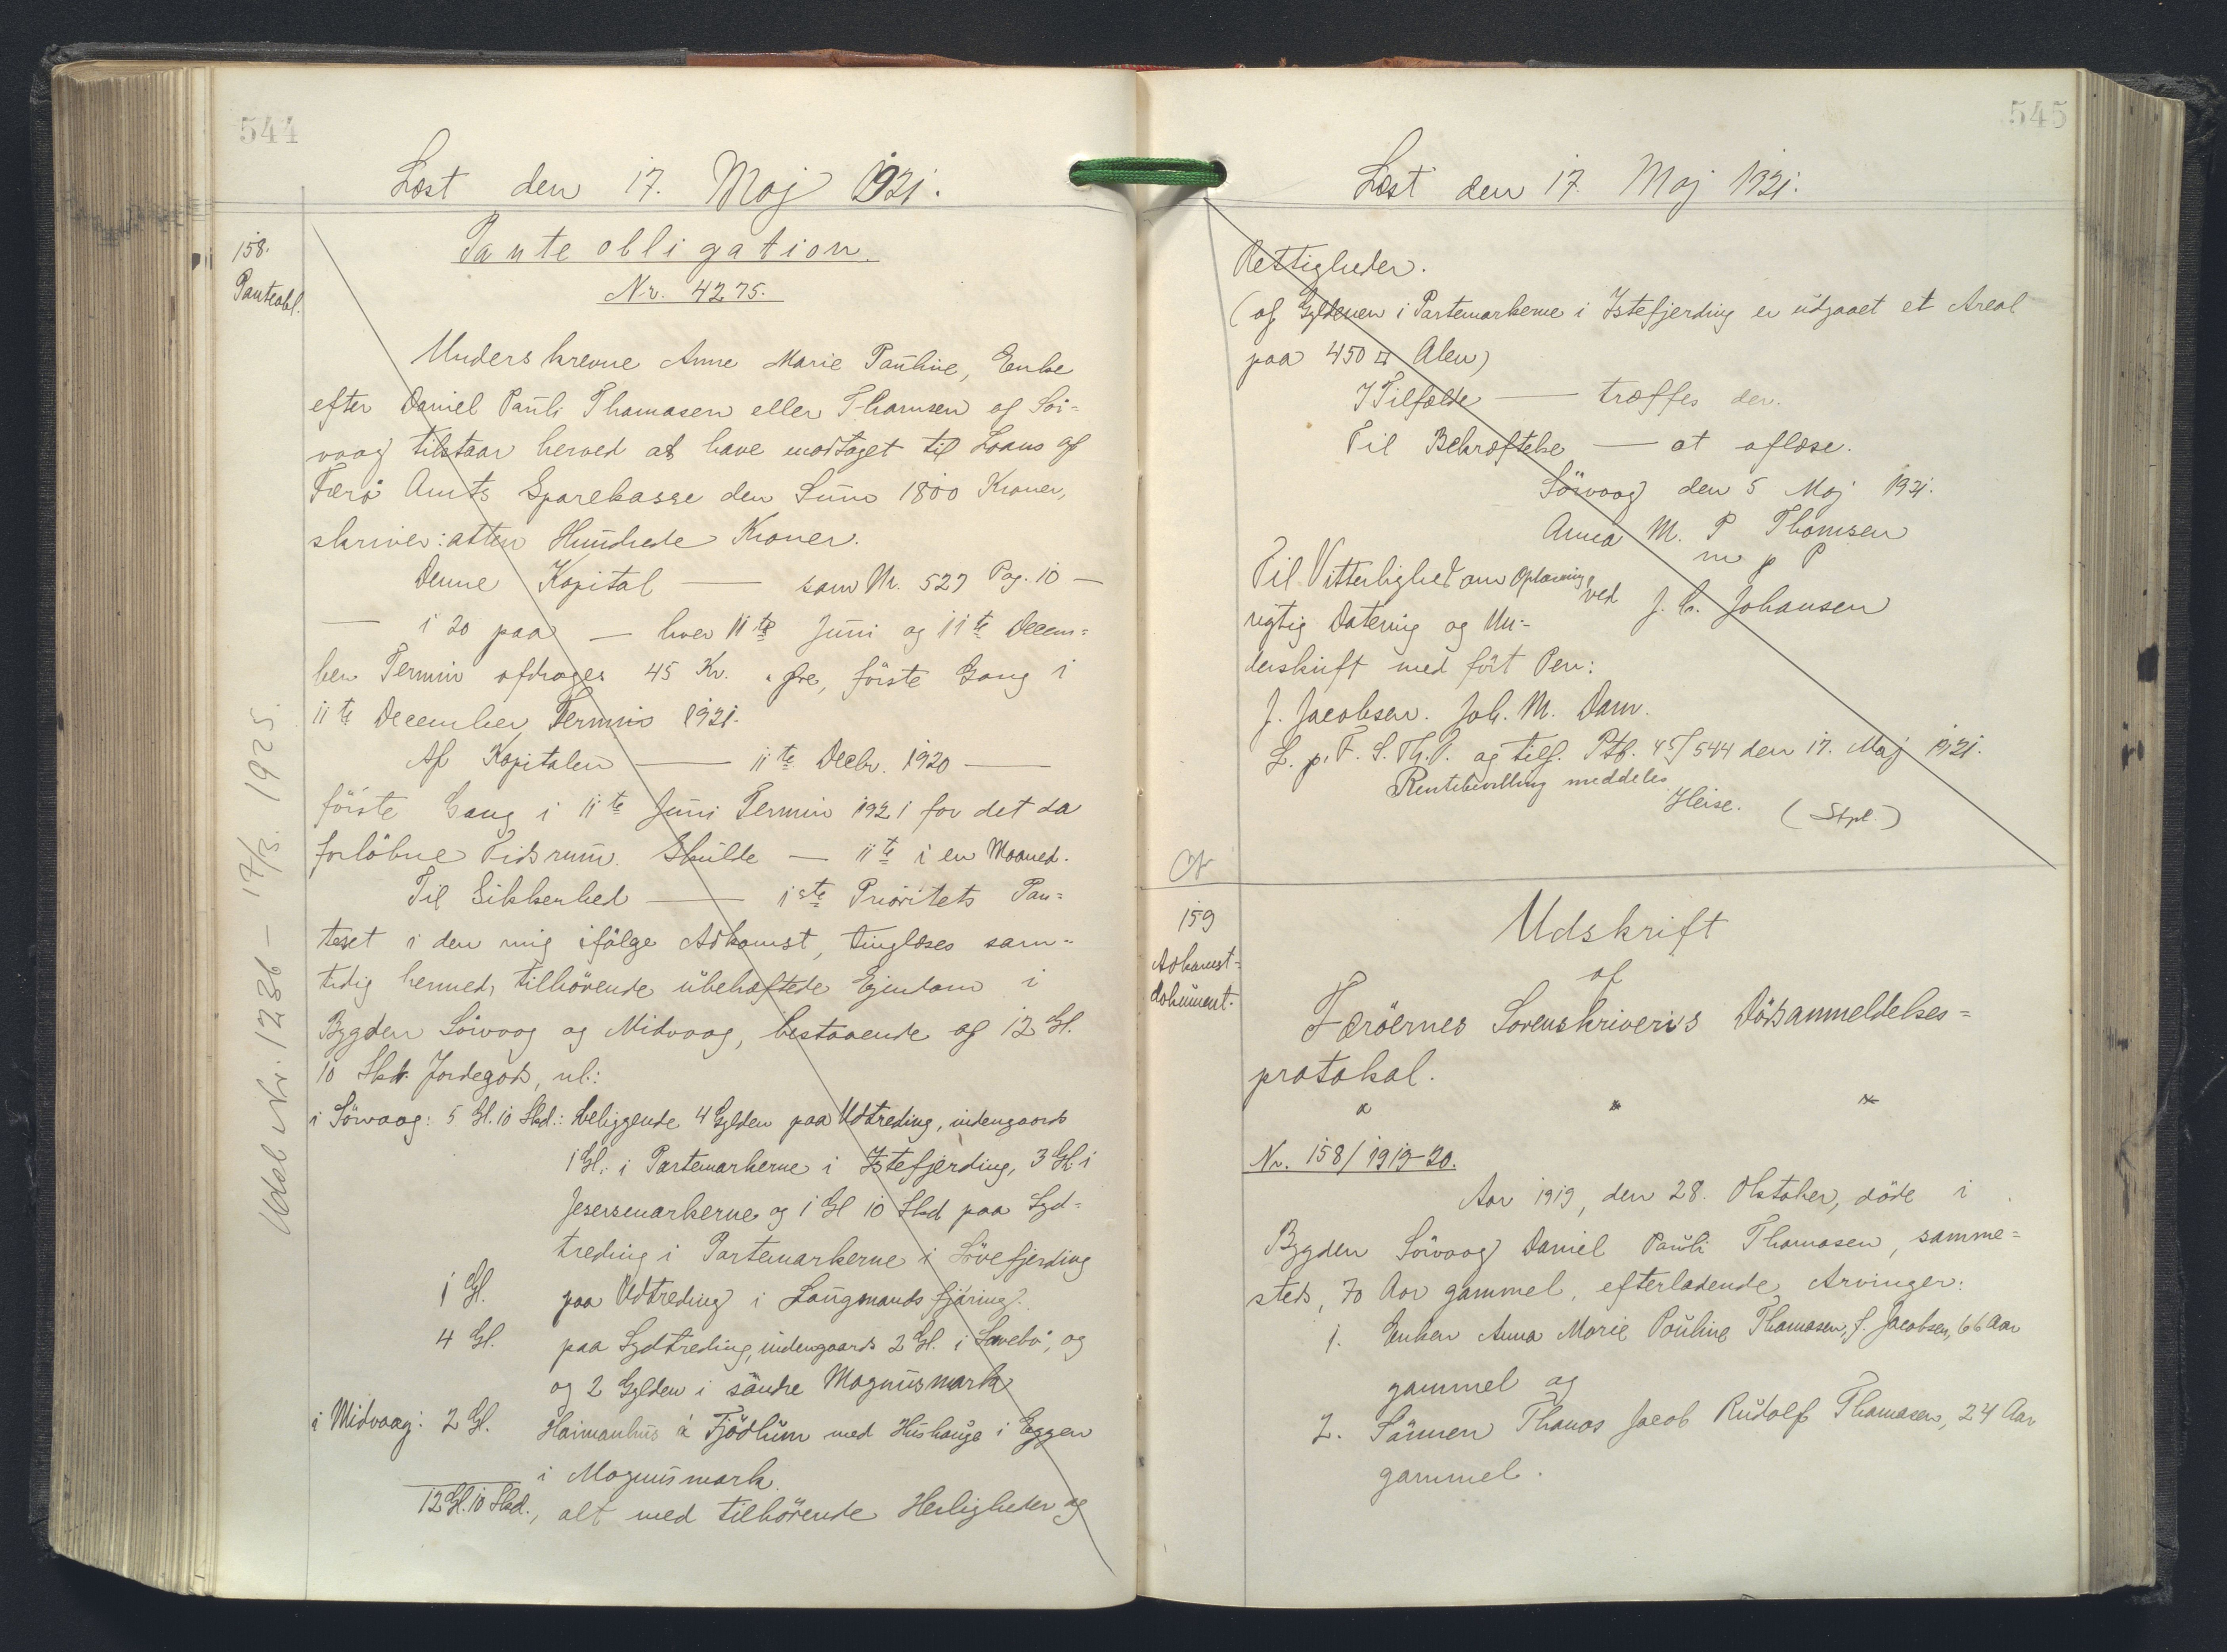 544
Læst den 17. Maj 1921.
158.
Panteobl.
Panteobligation.
Nr. 4275.
Underskrevne Anne Marie Pauline, Enke
efter Daniel Pauli Thomasen eller Thomsen af Sör-
vaag tilstaar herved at have modtaget til Laans af
Færö Amts Sparekasse den Sum 1800 Kroner,
skriver: atten Hundrede Kroner.
Denne Kapital — som Nr. 527 Pag. 10 —
— i 20 paa — hver 11te Juni og 11te Decem-
ber Termin afdrages 45 Kr. " Øre, förste Gang i
11te December Termin 1921.
Af Kapitalen — 11te Decbr. 1920 —
förste Gang i 11te Juni Termin 1921 for det da
forløbne Tidsrum. Skulde — 11te i en Maaned.
Til Sikkerhed — 1ste Prioritets Pan-
teret i den mig ifölge Adkomst, tinglæses sam-
tidig hermed, tilhörende ubehæftede Ejendom i
Bygden Sörvaag og Midvaag, bestaaende af 12 Gl.
10 Skd. Jordegods, nl.:
i Sörvaag: 5 Gl. 10 Skd.: beliggende 4 Gylden paa Udtreding, indengaards
1 Gl. i Partemarkerne i Istefjerding, 3 Gl. i
Jesersmarkerne og 1 Gl 10 Skd paa Syd-
treding i Partemarkerne i Lövefjerding
1 Gl. paa Udtreding i Laugmands fjäring.
4 Gl. paa Sydtreding, indengaards 2 Gl. i Lavebö, og
og 2 Gylden i söndre Magnusmark
i Midvaag: 2 Gl. Haimanhus á Fjödlum med Hushauge i Eggen
i Magnusmark.
12 Gl. 10 Skd., alt med tilhörende Herligheder og
Udsl. Nr. 1236 - 17/3. 1925.
545
Læst den 17. Maj 1921.
Rettigheder.
(af Gyldenen i Partemarkerne i Istefjerding er udgaaet et Areal
paa 450 □ Alen)
I Tilfælde — træffes der.
Til Bekræftelse — at aflæse.
Sörvaag den 5 Maj 1921.
Anna M. P Thomsen
m p P
Til Vitterlighed om Oplæsning, ved J. C. Johansen
rigtig Datering og Un-
derskrift med fört Pen:
J. Jacobsen. Joh. M. Dam.
L. p. F. S. Th. P. og tilf. Ptb. 45/544 den 17. Maj 1921.
Rentebevilling meddeles
Heise. (Stpl.)
159
Adkomst-
dokument.
Udskrift
af
Færöernes Sorenskriveris Dödsanmeldelses-
protokol.
" " "
Nr. 158/1919-20.
Aar 1919, den 28. Oktober, döde i
Bygden Sörvaag Daniel Pauli Thomasen, samme-
steds, 70 Aar gammel, efterladende Arvinger:
1. Enken Anna Marie Pouline Thomasen, f. Jacobsen, 66 Aar
gammel og
2. Sönnen Thomas Jacob Rudolf Thomasen, 24 Aar
gammel.